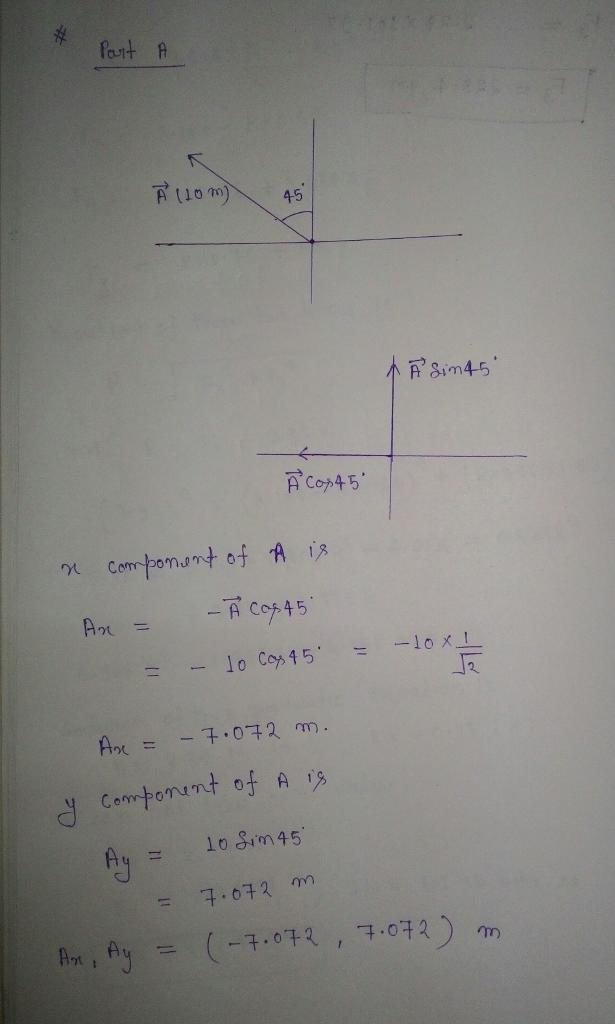 #
Part A
A⃗ (10 m)
45°
A⃗ Sin45°
A⃗ Cos45°
x component of A is
Ax = -A⃗ Cos45°
= - 10 Cos45° = -10 × 1/√2
Ax = -7.072 m.
y component of A is
Ay = 10 Sin45°
= 7.072 m
Ax, Ay = (-7.072, 7.072) m